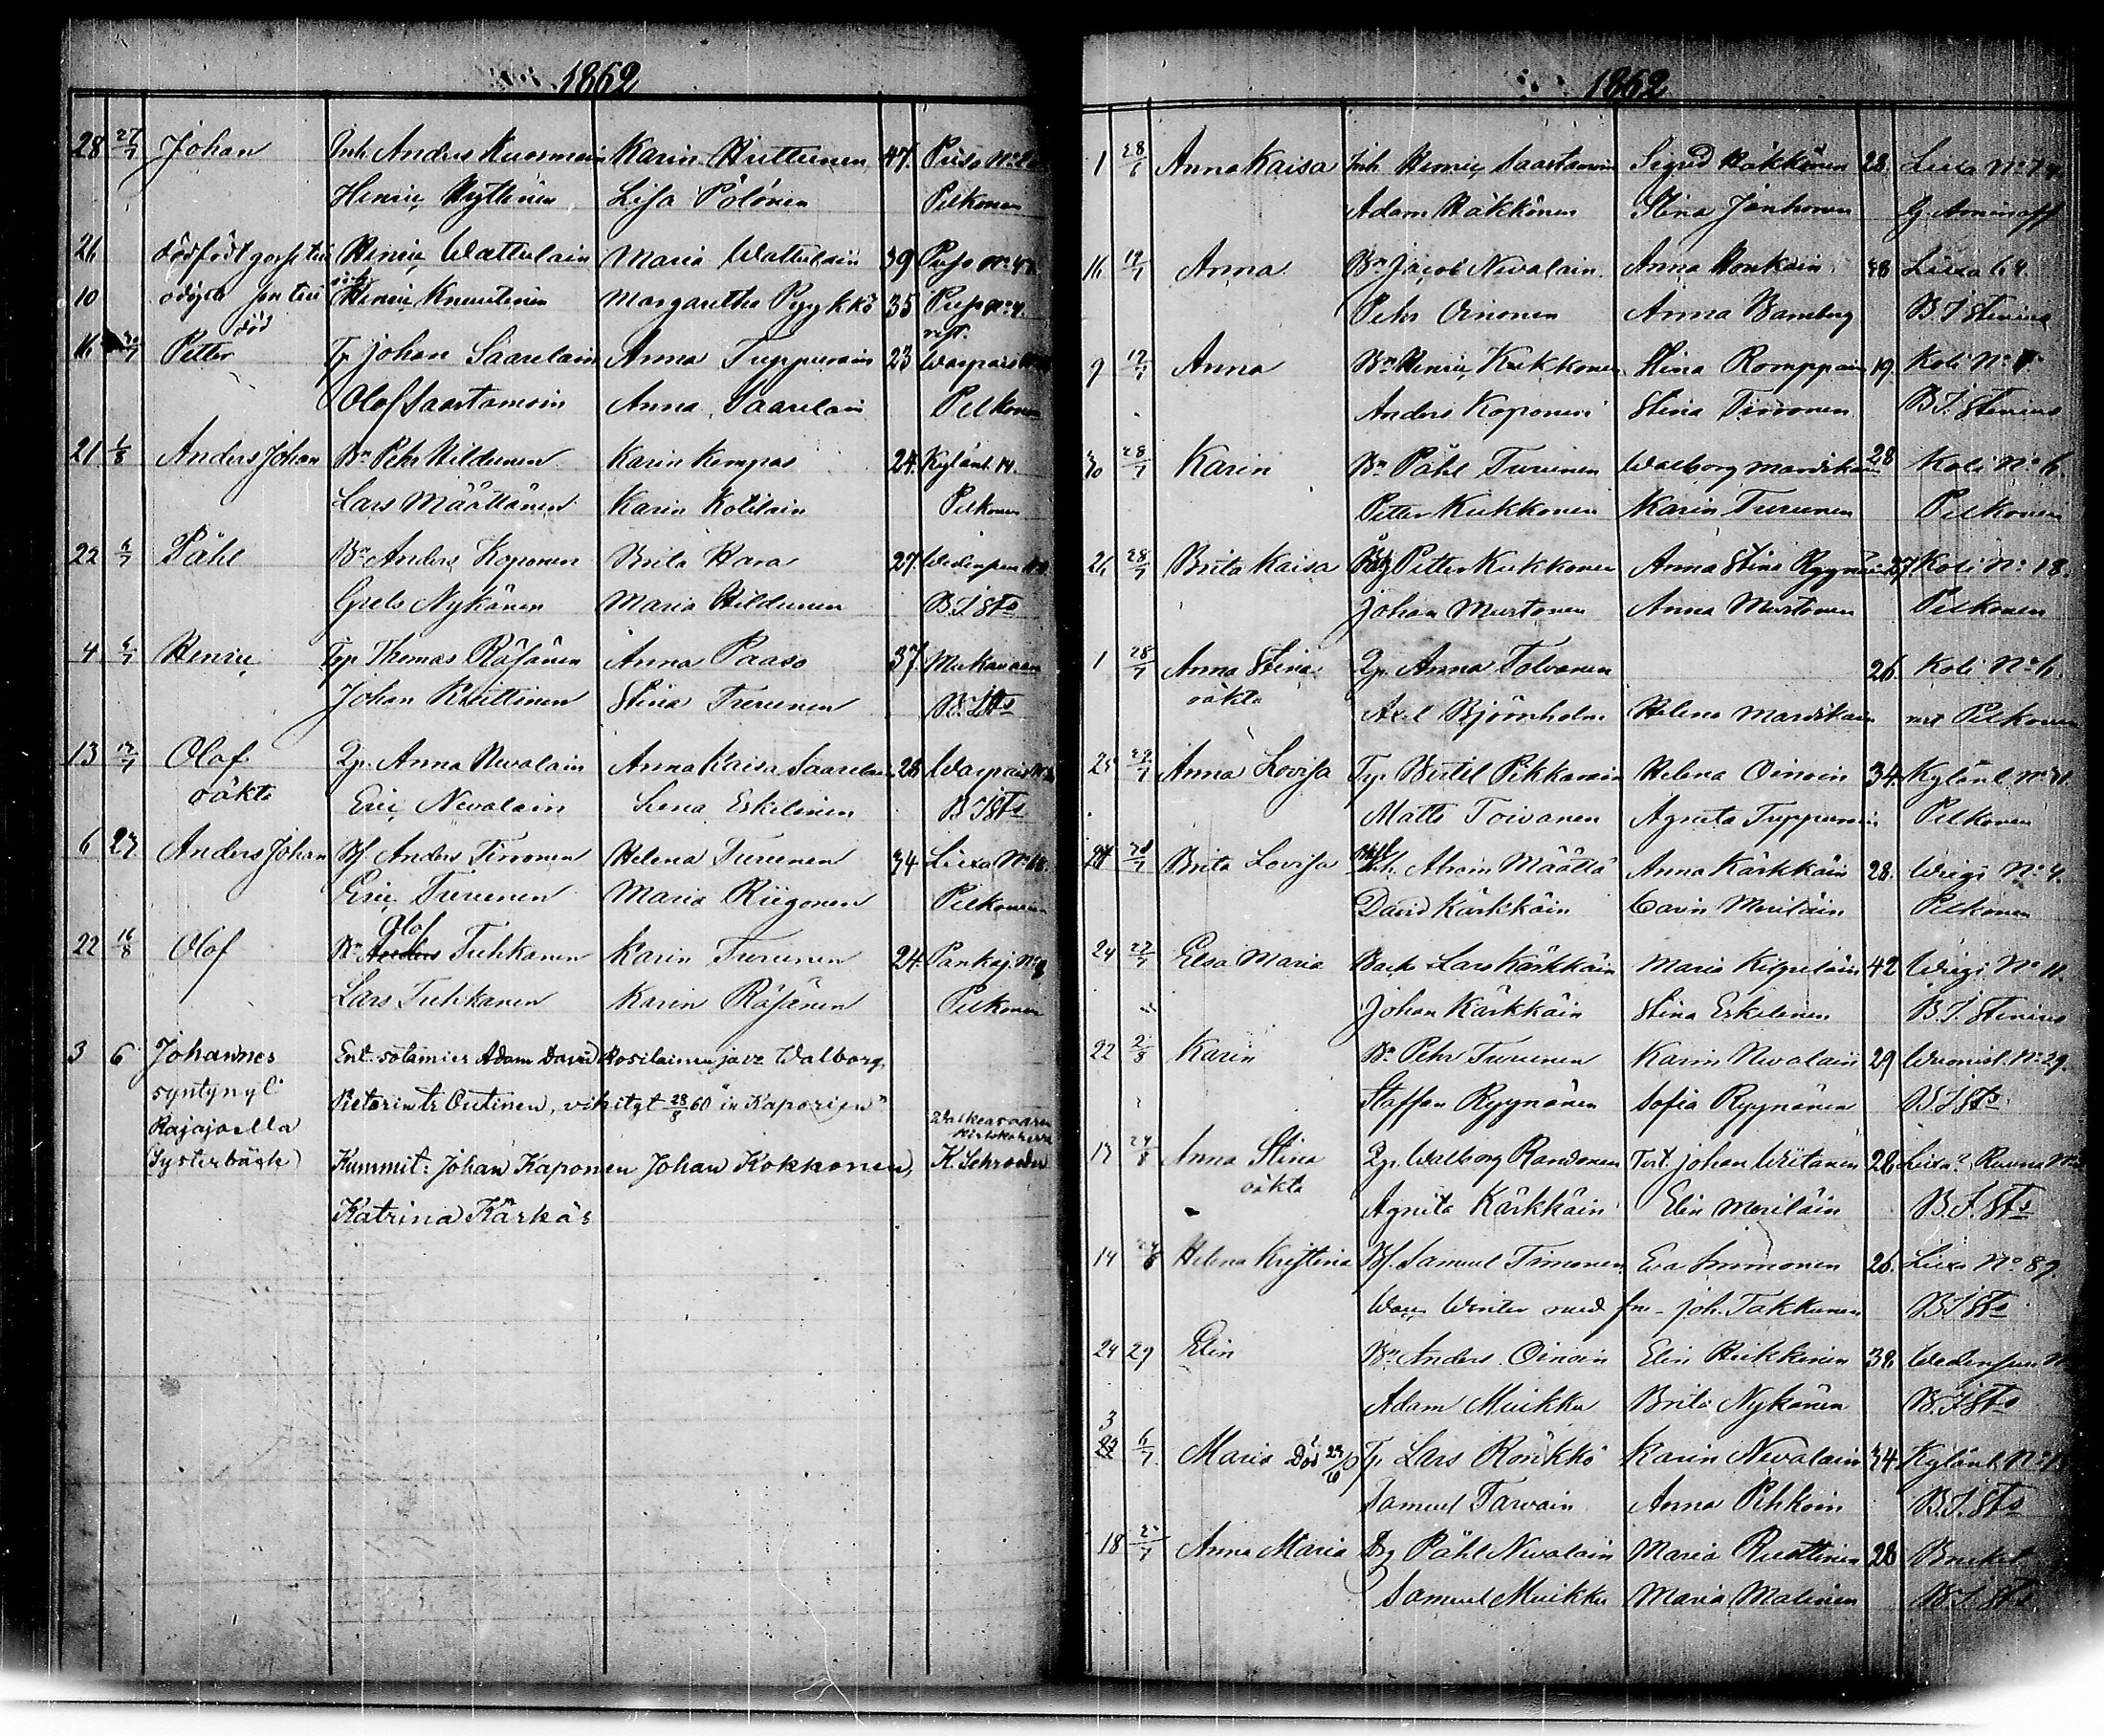 1862
28 27/7 Johan Inh. Anders Kuosmain Karin Huttunen 47. Puso No.
Henric Hyttinen Lisa Pölönen Pelkonen
26 dödfödt Henric Wattulain Maria Wattulain 39 Puso No.
10 Henric Knuutinen Margaretha Pyykkö 35 Puso No. 4.
död
16 Petter Tp. Johan Saarelain Anna Tuppurain 23
Olof Saastamoin Anna Saarelain Pelkonen
21 1/8 Anders Johan Bn. Pehr Hildunen Karin Kempas 24. Kylänl. 14.
Lars Määttänen Karin Kotilain Pelkonen
22 6/7 Påhl Bn. Anders Koponen Brita Hara 27.
Grels Nykänen Maria Hildunen B.J. Sts
4 6/7 Henric Tp. Thomas Räsänen Anna Paaso 37.
Johan Stina Turunen B.J. Sts
13 Olof Qp. Anna Nevalain Anna Kaisa Saarelain 28
oäkta Eric Nevalain Lena Eskelinen B.J. Sts
6 27 Anders Johan Bf. Anders Timonen Helena Turunen 34 Liexa No.
Eric Turunen Maria Riigonen Pelkonen
Olof
22 16/8 Olof Bn. Anders Tuhkanen Karin Turunen 24. Pankaj. No.
Lars Tuhkanen Karin Räsänen Pelkonen
3 6 Johannes Ent. sotamies Adam David Kosilainen ja vz Walborg
syntynyt Pietarintr Outinen, vihityt 28/8 60 in Kaporien
Rajajoella
(Systerbäck) Kummit: Johan Kaponen Johan Kokkonen, K. Schroeder
Katrina Kärkäs
1862
1 Anna Kaisa Inh. Henric Saastamoin Sigrid Häkkönen 28. Liexa No.
Adam Häkkönen Stina Jänhonen G. Aminoff
16 Anna Bn. Jacob Nevalain Anna Honkain 48 Liexa 64.
Pehr Oinonen Anna Bamberg B.J. Stenius
9 Anna Bn. Henric Kukkonen Stina Romppain 19. Koli No.
Anders Koponen Stina Timonen B.J. Stenius
30 28/7 Karin Bn. Påhl Turunen Walborg Mardikain 28 Koli No. 6.
Petter Kukkonen Karin Turunen Pelkonen
26 28/7 Brita Kaisa Petter Kukkonen Anna Stina Ryynäin 27 Koli No. 18.
Johan Murtonen Anna Murtonen Pelkonen
1 28/7 Anna Stina Qp. Anna Tolvanen 26 Koli No. 6.
oäkta Axel Björnholm Helena Mardikain Pelkonen
25 29/7 Anna Lovisa Tp. Bertil Pikkarain Helena Oinoin 34. Kylänl. No.
Matts Toivanen Agneta Tuppurain Pelkonen
Brita Lovisa Inh. Abram Määttä Anna Kärkkäin 28. Wiegi No. 4.
David Kärkkäin Carin Meriläin Pelkonen
24 27/7 Elsa Maria Lars Kärkkäin Maria Kilpeläin 42 Wiegi No. 11.
Johan Kärkkäin Stina Eskelinen B.J. Stenius
22 2/8 Karin Bn. Pehr Turunen Karin Nevalain 29 No. 29.
Staffan Ryynänen Sofia Ryynänen B.J. Sts
17 24/8 Anna Stina Qp. Walborg Randonen Johan Wiitanen 28
oäkta Agneta Kärkkäin Elin Meriläin B.J. Sts
14 Helena Kristina Bf. Samuel Timonen Eva Immonen 26. Liexa No. 87.
Winter med fru Joh. Takkunen B.J. Sts
24 29 Elin Bn. Anders Oinoin Elin Heikkinen 38.
Adam Muikku Brita Nykänen B.J. Sts
3
22 6/7 Maria Död Tp. Lars Rönkkö Karin Nevalain 34. Kylänl. No.
Samuel Tarvain Anna Pehkoin B.J. Sts
18 Anna Maria Drg Påhl Nevalain Maria Ruottinen 28 Bruket
Samuel Muikku Maria Malinen B.J. Sts